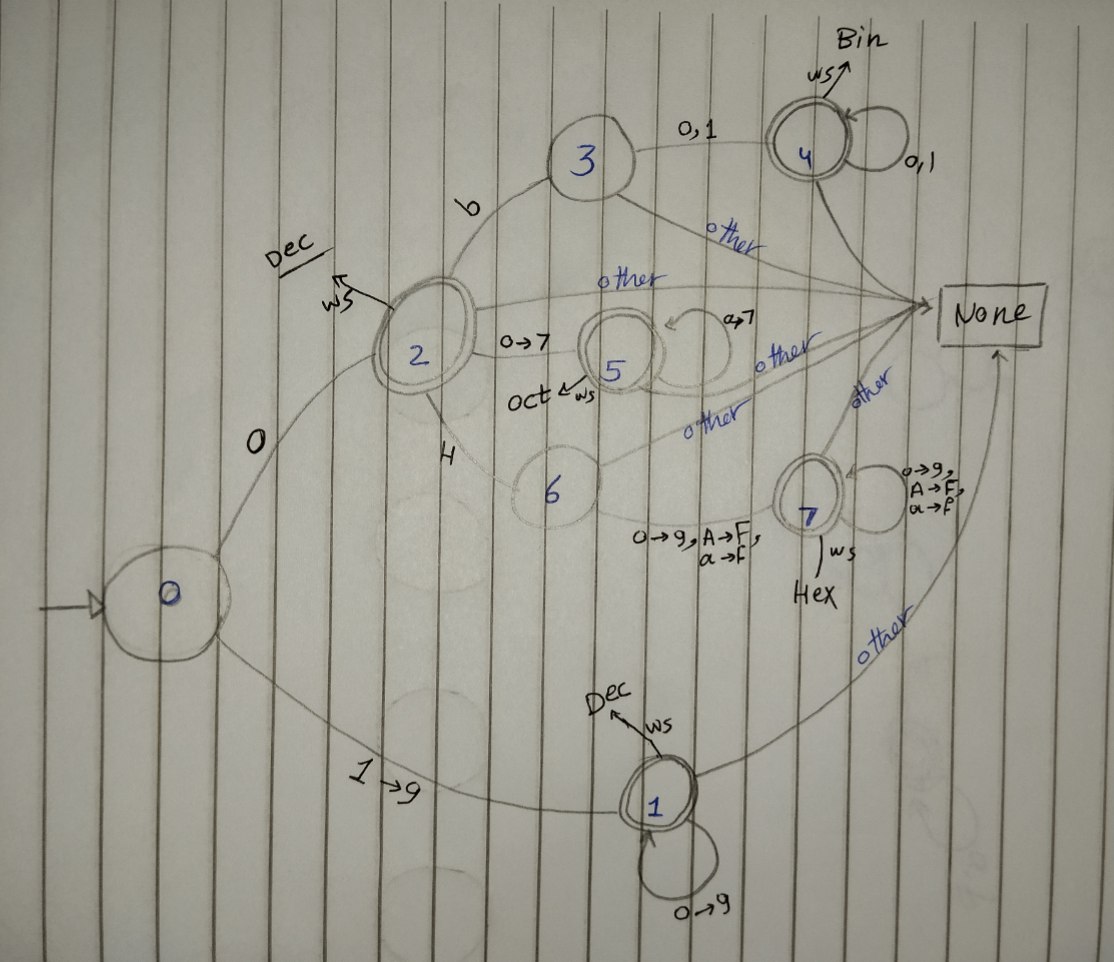 Bin
ws
0,1
4
3
0,1
b
other
Dec
other
ws
None
0→7
0,7
2
5
other
oct
ws
other
other
H
0→9,
A→F,
a→f
6
7
0
0→9, A→F,
a→F
ws
Hex
0
other
Dec
ws
1→9
1
0→9